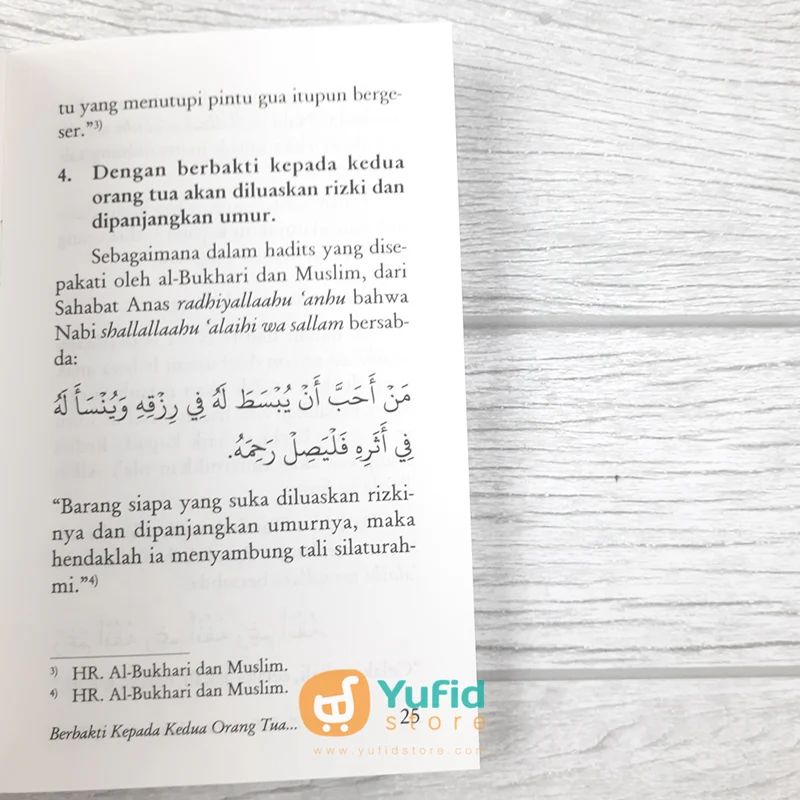 tu yang menutupi pintu gua itupun berge-
ser.”3)
4. Dengan berbakti kepada kedua
orang tua akan diluaskan rizki dan
dipanjangkan umur.
Sebagaimana dalam hadits yang dise-
pakati oleh al-Bukhari dan Muslim, dari
Sahabat Anas radhiyallaahu ‘anhu bahwa
Nabi shallallaahu ‘alaihi wa sallam bersab-
da:
مَنْ أَحَبَّ أَنْ يُبْسَطَ لَهُ فِي رِزْقِهِ وَيُنْسَأَ لَهُ
فِي أَثَرِهِ فَلْيَصِلْ رَحِمَهُ.
“Barang siapa yang suka diluaskan rizki-
nya dan dipanjangkan umurnya, maka
hendaklah ia menyambung tali silaturah-
mi.”4)
3) HR. Al-Bukhari dan Muslim.
4) HR. Al-Bukhari dan Muslim.
Berbakti Kepada Kedua Orang Tua... 25
Yufid
store
www.yufidstore.com